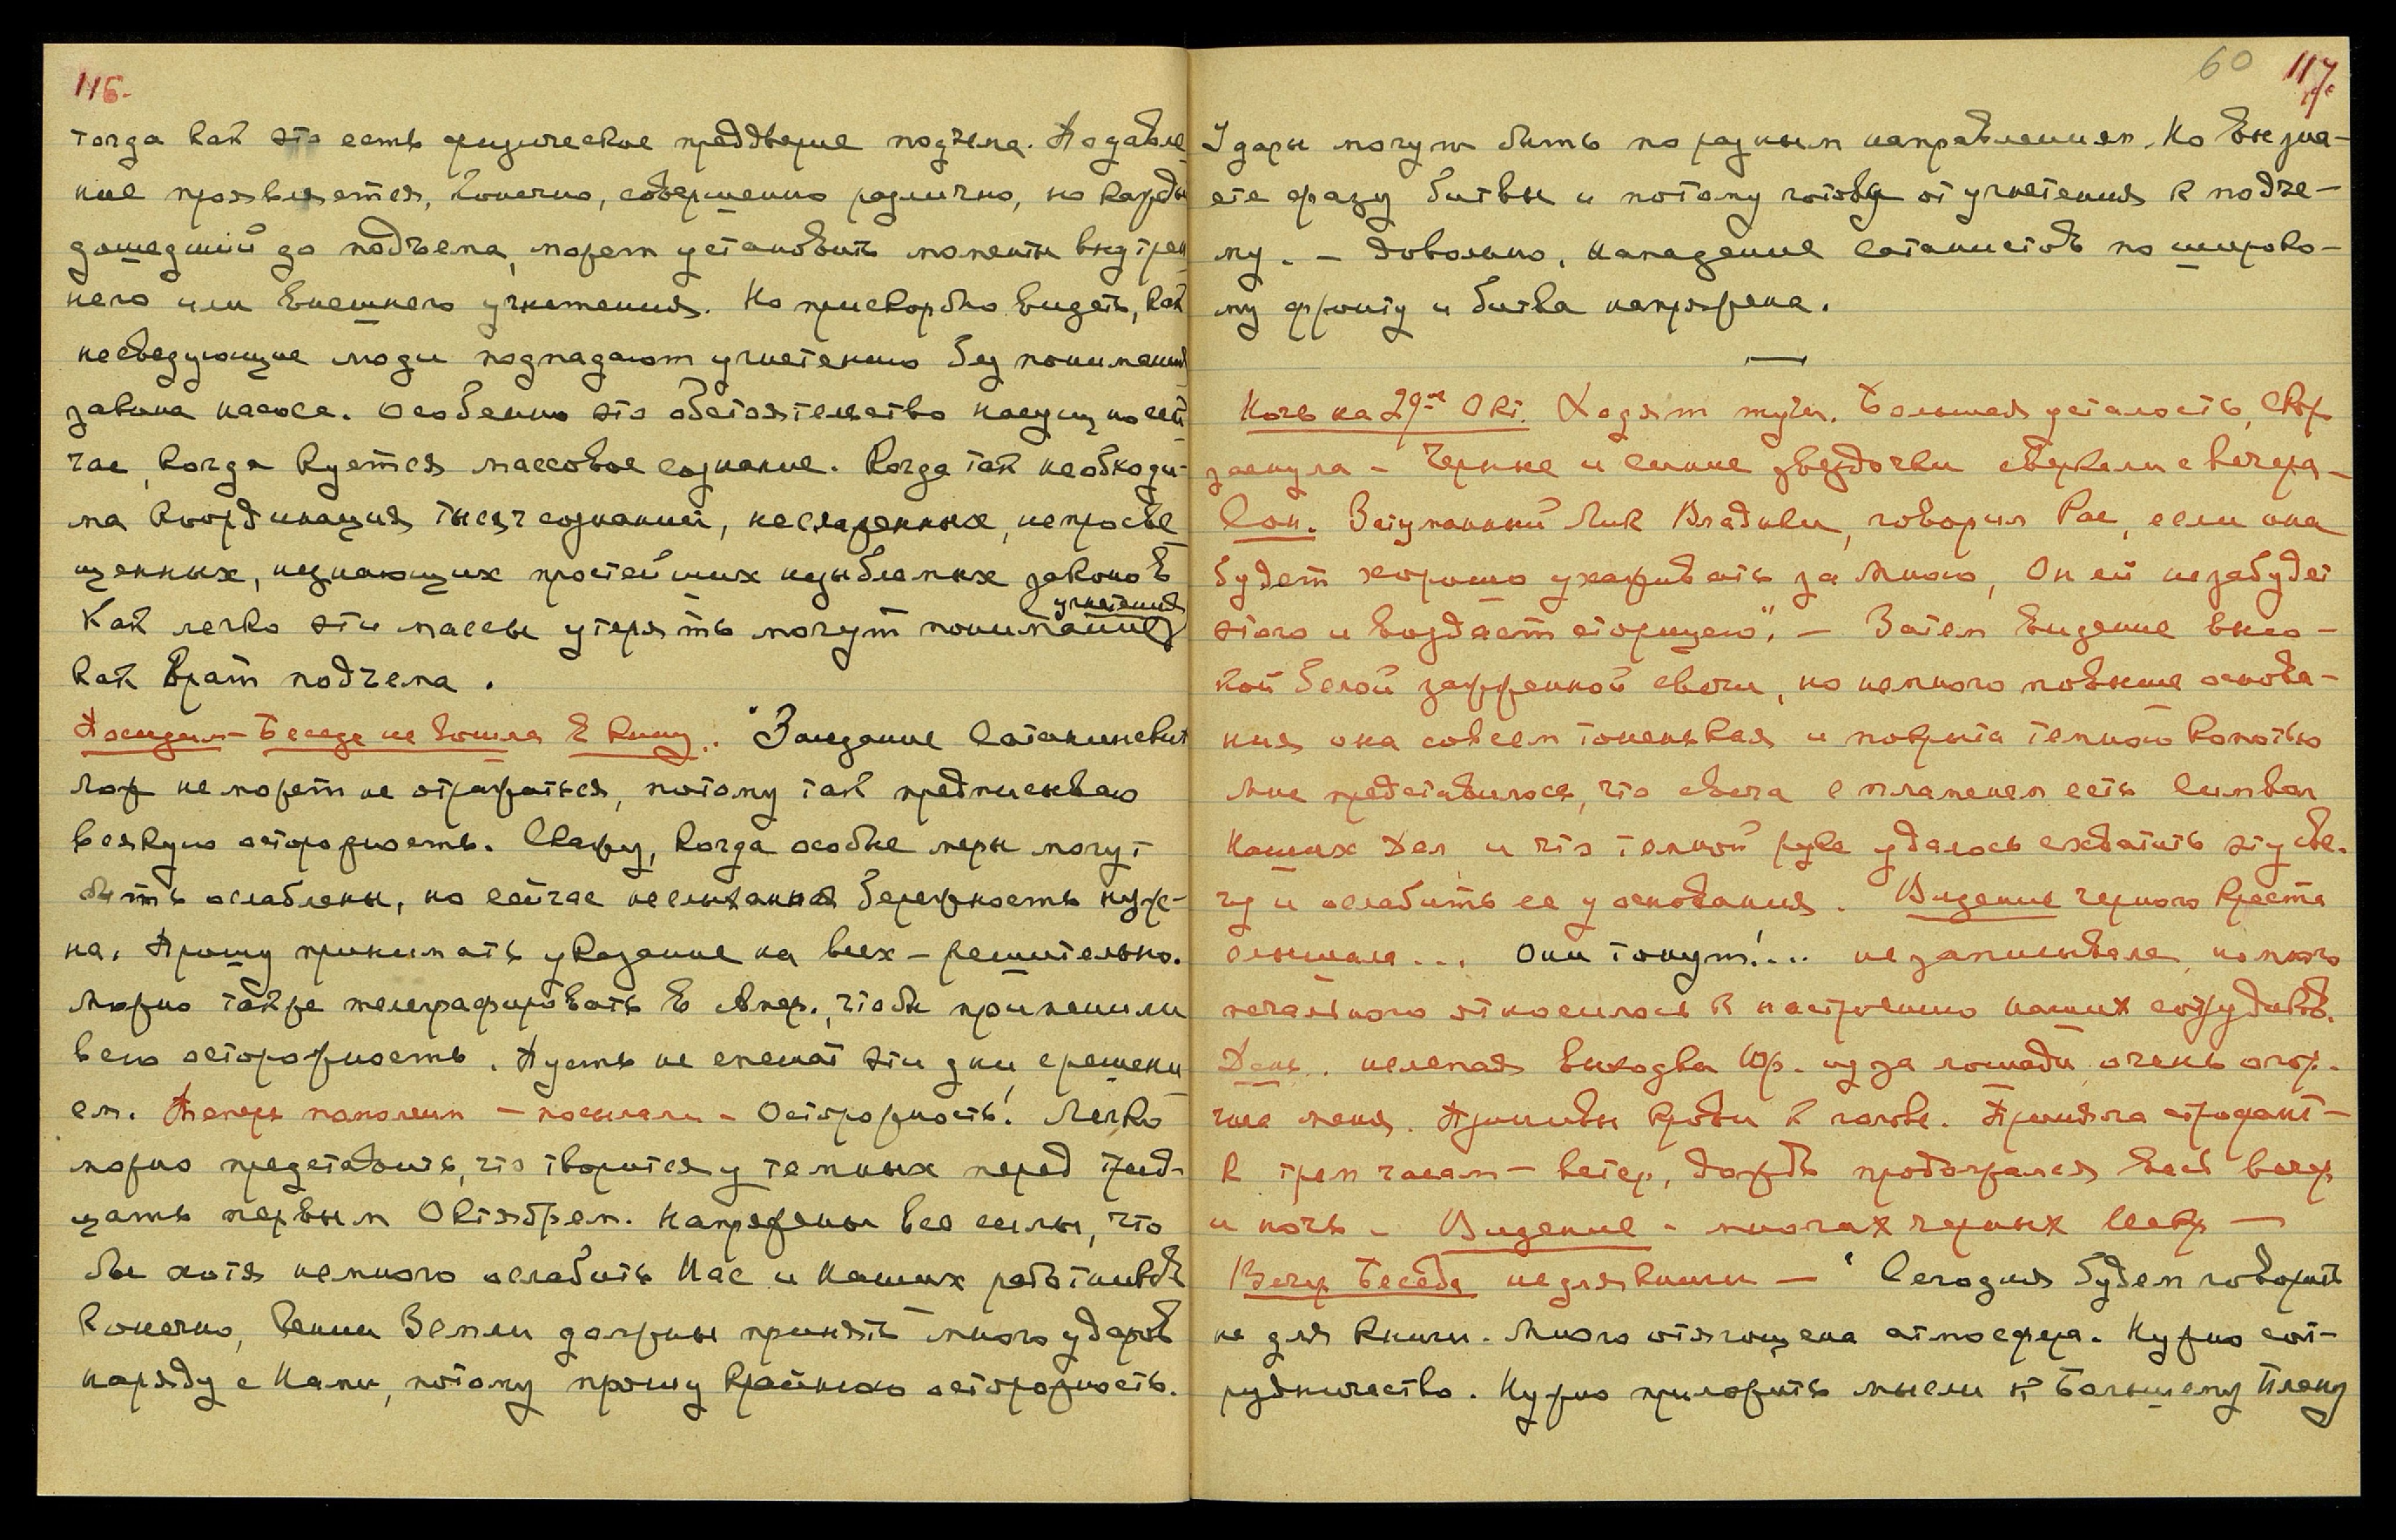 116.
тогда как это есть физическое преддверие подъема. Подавле-
ние проявляется, конечно, совершенно различно, но кажды
дошедший до подъема, может установить моменты внутрен-
него или внешнего угнетения. Но прискорбно видеть, как
несведующие люди подпадают угнетению без понимания
закона насоса. Особенно это обстоятельство насущно сей-
час, когда куется массовое сознание. Когда так необходи-
ма координация тысяч сознаний, неслаженных, непросве-
щенных, незнающих простейших незыблемых законов
угнетения
Как легко эти массы утерять могут понимание
как врат подъема.
Последняя Беседа не вошла в книгу.. "Заседание
Лож не может не отразиться, потому так предписываю
всякую осторожность. Скажу, когда особые меры могут
быть ослаблены, но сейчас неслыханная бережность нуж-
на. Прошу принимать указание на всех – решительно.
Можно также телеграфировать в Амер., чтобы применили
всю осторожность. Пусть не спешат эти дни с решени
ем. Теперь пополним – посылали – Осторожность! Легко
можно представить, что творится у темных перед трид-
цать первым Октября. Напряжены все силы, что
бы хотя немного ослабить Нас и Наших работников
Конечно, Земли должны принять много ударов
наряду с Нами, потому прошу крайнюю осторожность.
60 117.
Удары могут быть по разным направлениям. Но вы зна-
ете фазу битвы и потому готовы от угнетения к подъе-
му. – Довольно, нападение сатанистов по широко-
му фронту и битва напряжена.
Ночь на 29-ое Окт. Ходят тучи. Большая усталость, скор
заснула – Черные и синие звездочки сверкали с вечера –
Сон. Затуманный Лик Владыки, говорил Рае, если она
будет хорошо ухаживать за мною, Он ей не забудет
этого и воздаст сторицею". – Затем Видение высо-
кой белой зажженной свечи, но немного повыше основа-
ния она совсем тоненькая и покрыта темною копотью
Мне представилось, что свеча с пламенем есть символ
Наших Дел и что темной руке удалось схватить эту све-
чу и ослабить ее у основания. Видение черного креста
слышала ... Они тонут!... не записывала, но много
печального относилось к настроению наших сотрудников.
День. нелепая выходка Юр. из за лошади очень огор-
чила меня. Приливы крови к голове. Приняла строфант –
к трем часам – ветер, дождь продолжался весь вечер
и ночь – Видение – многих черных искр —
Вечер Беседа не для книги – "Сегодня будем говорить
не для книги. Много отягощена атмосфера. Нужно сот-
рудничество. Нужно приложить мысли к Большему Плану